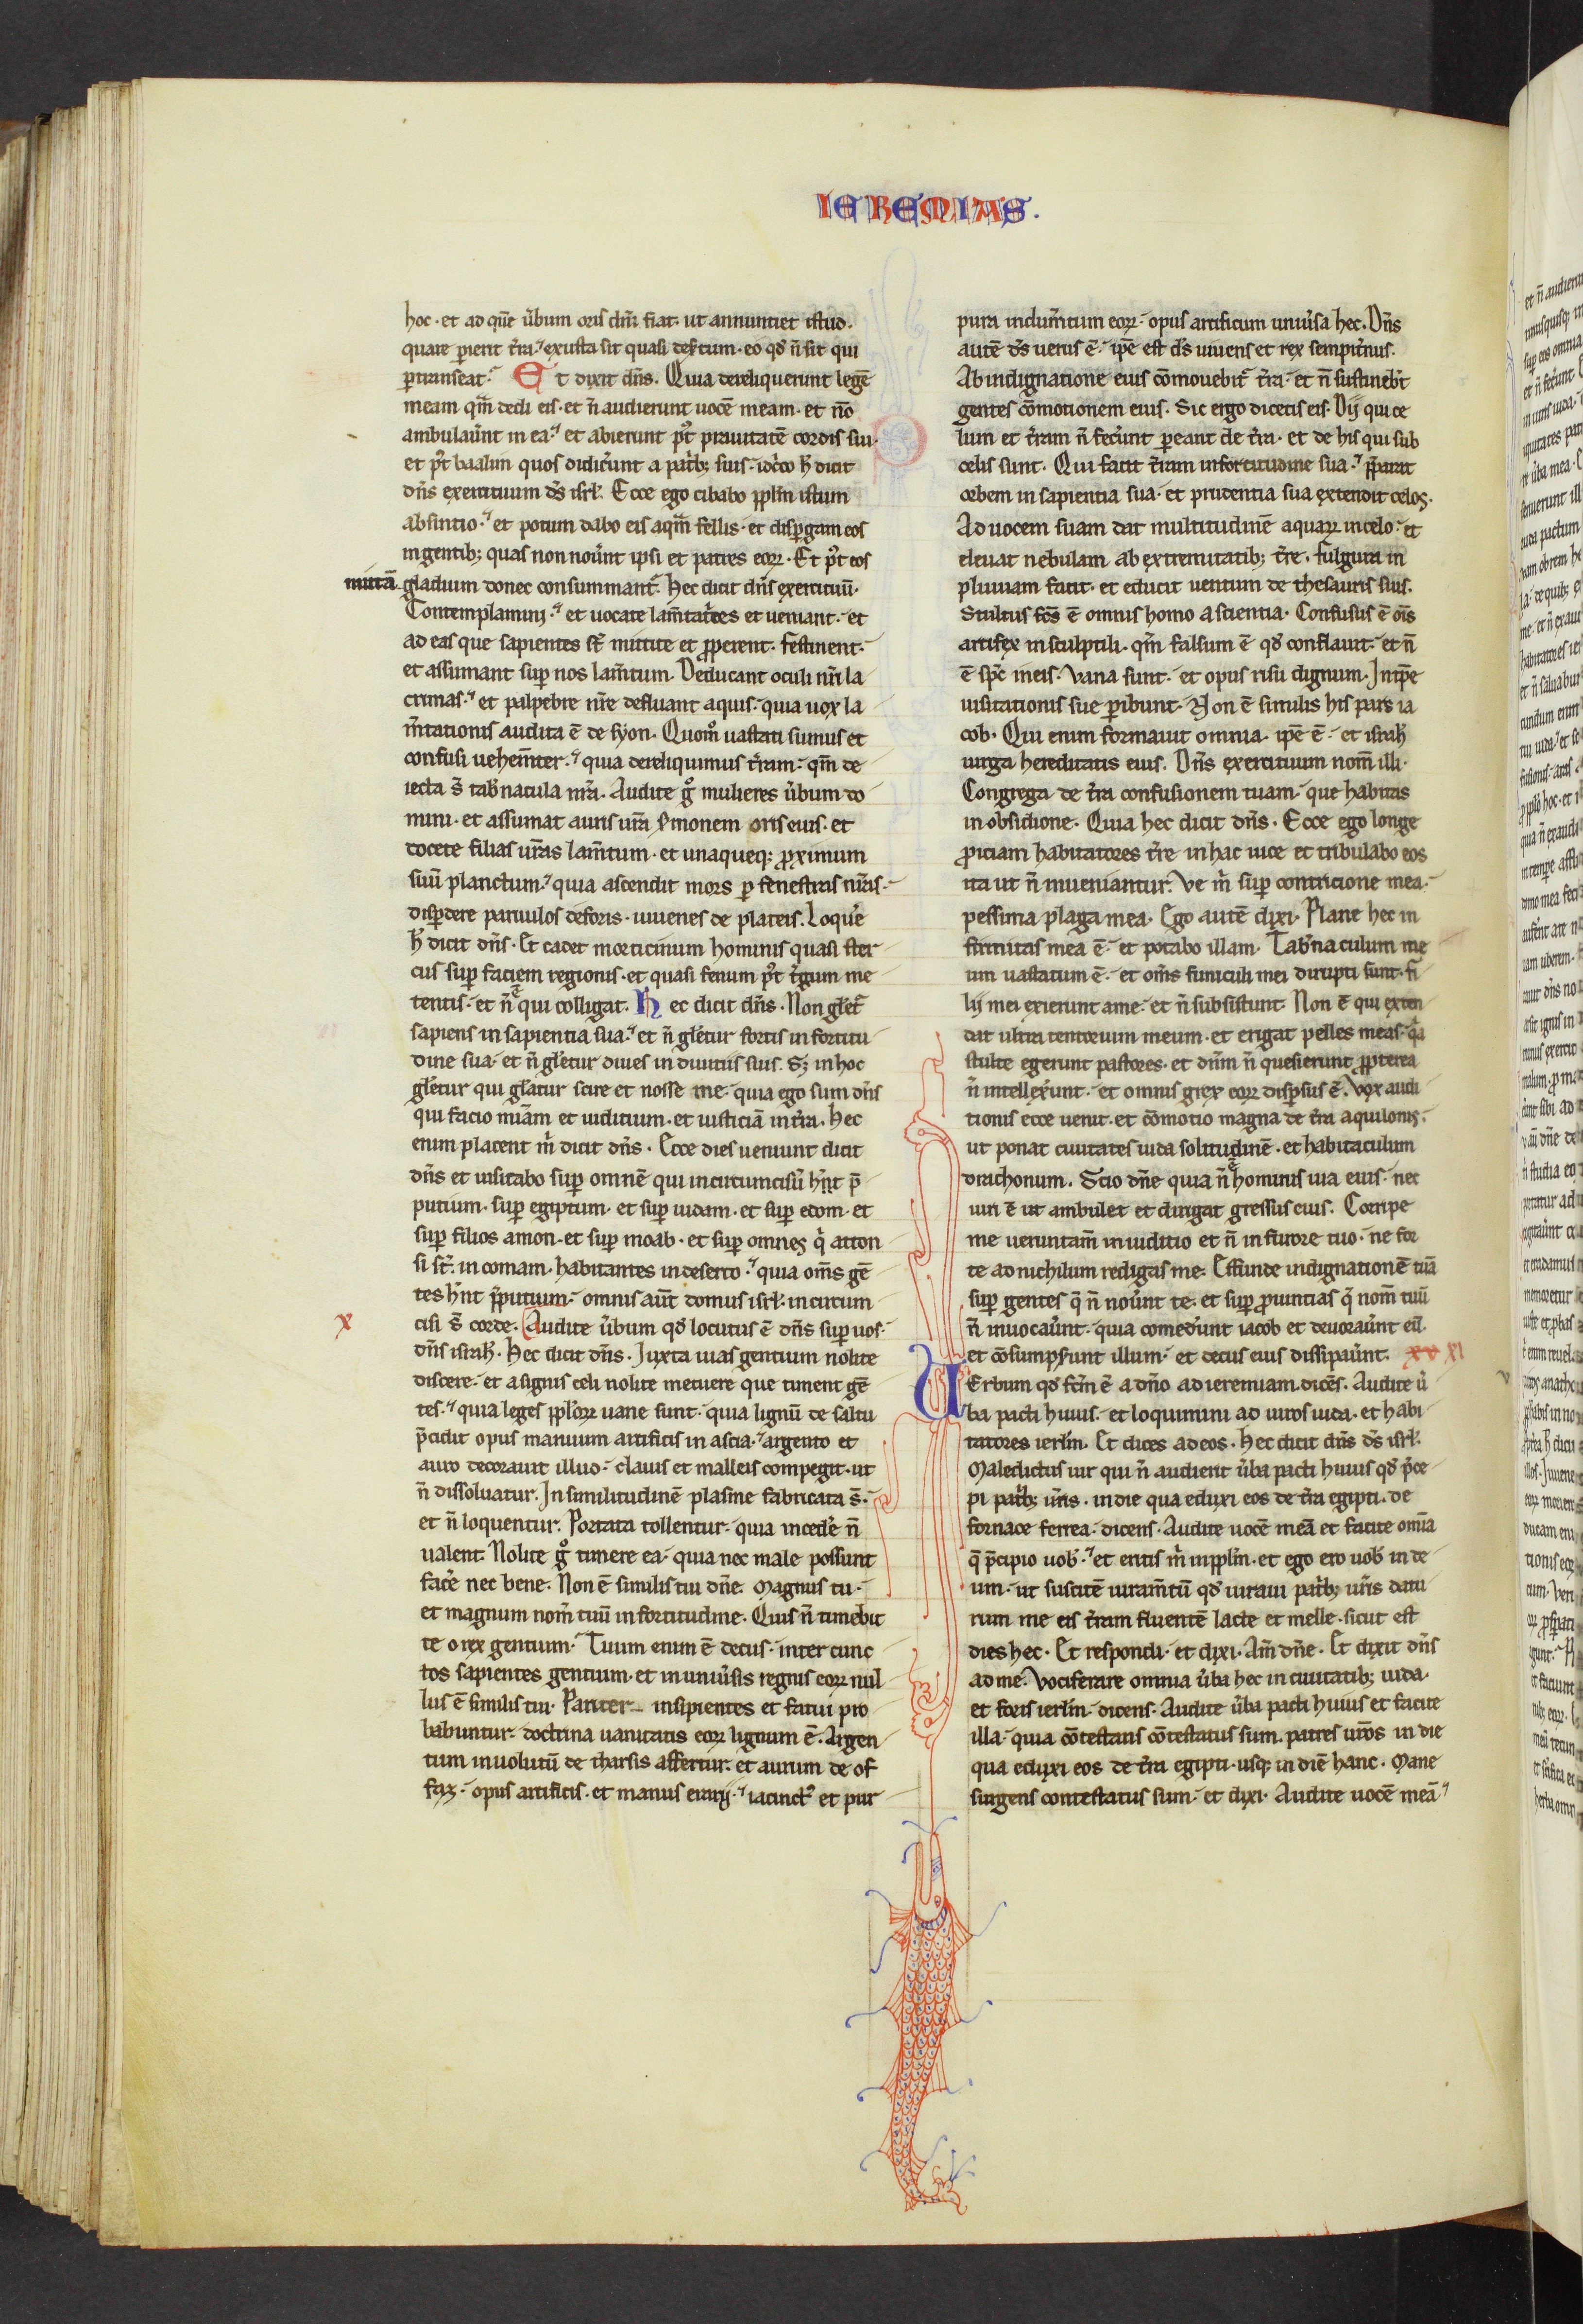 IEREMIAS.
hoc · et ad quē ũbum oris dñi fiat · ut annuntiet istud ·
quare perierit t̃ra · exusta sit quasi desertum · eo qđ ñ sit qui
ꝑtranseat · Et dixit dñs · Quia dereliquerunt legē
meam qm̃ dedi eis · et ñ audierunt uocē meam · et nō
ambulaũnt in ea · et abierunt pꝰt prauitatē cordis sui ·
et pꝰt baalim quos didiceruñt a patrib; suis · idcͦo h̃ dicit
dñs exercituum dś isrł · Ecce ego cibabo ꝑplm istum
absintio · et potum dabo eis aquã fellis · et dispergam eos
in gentib; quas non noũnt ipsi et patres eoꝝ · Et pꝰt eos
mittā gladium donec consummant̃ · Hec dicit dñs exercituū ·
Contemplamini · et uocate lam̃tatͥces et ueniant · et
ad eas que sapientes st̃ mittite et ꝓperent · festinent ·
et assumant suꝑ nos lam̃tum · Deducant oculi nr̃i la
crimas · et palpebre nr̃e defluant aquis · quia uox la
m̃tationis audita ē de syon · Quomͦ uastati sumus et
confusi uehem̃ter · quia dereliquimus t̃ram · qm̃ de
iecta s̃ tab̃nacula nr̃a · Audite gͦ mulieres ũbum do
mini · et assumat auris ur̃a sermonem oris eius · et
docete filias ur̃as lam̃tum · et unaqueq; ꝓximum
suū planctum · quia ascendit mors ꝑ fenestras nr̃as ·
disꝑdere paruulos deforis · iuuenes de plateis · Loquẽ
h̃ dicit dñs · Et cadet morticinum hominis quasi ster
cus suꝑ faciem regionis · et quasi fenum pꝰt t̃gum me
tentis · et ñ ē qui colligat · Hec dicit dñs · Non głet̃
sapiens in sapientia sua · et ñ głetur fortis in fortitu
dine sua · et ñ głetur diues in diuitiis suis · S; in hoc
głetur qui głatur scire et nosse me · quia ego sum dñs
qui facio miam̃ et iuditium · et iusticiā in t̃ra · Hec
enim placent m̃ dicit dñs · Ecce dies ueniunt dicit
dñs et uisitabo suꝑ omnē qui in circumcisũ hñt p̄
putium · suꝑ egiptum · et suꝑ iudam · et suꝑ edom · et
suꝑ filios amon · et suꝑ moab · et suꝑ omnes qͥ atton
si st̃ in comam · habitantes in deserto · quia oms̃ gē
tes hñt p̄putium · omnis aũt domus isrł · in circum
x
cisi s̃ corde · Audite ũbum qđ locutus ē dñs suꝑ uos ·
dñs israhł · Hec dicit dñs · Iuxta uias gentium nolite
discere · et a signis celi nolite metuere que timent gē
tes · quia leges ꝑploꝝ uane sunt · quia lignū de saltu
p̄cidit opus manuum artificis in ascia · argento et
auro decorauit illud · clauis et malleis compegit · ut
ñ dissoluatur · In similitudinē palme fabricata s̃ ·
et ñ loquentur · Portata tollentur · quia incedẽ ñ
ualent · Nolite gͦ timere ea · quia nec male possunt
facẽ nec bene · Non ē similis tui dñe · Magnus tu ·
et magnum nom̃ tuū in fortitudine · Quis ñ timebit
te o rex gentium · Tuum enim ē decus · inter cunc
tos sapientes gentium · et in uniũsis regnis eoꝝ nul
lus ē similis tui · Pariter insipientes et fatui pro
babuntur · doctrina uanitatis eoꝝ lignum ē · Argen
tum inuolutū de tharsis affertur · et aurum de of
faz · opus artificis · et manus erarij · iacinctꝰ et pur
pura indum̃tum eoꝝ · opus artificum uniũsa hec · Dñs
autē dś uerus ē · ip̃e est dś uiuens et rex sempit̃nus ·
Ab indignatione eius cōmouebit̃ t̃ra · et ñ sustineb̃t
gentes cōmotionem eius · Sic ergo dicetis eis · Dij qui ce
lum et t̃ram ñ fecer̃unt pereant de t̃ra · et de his qui sub
celis sunt · Qui facit t̃ram in fortitudine sua · p̄parat
orbem in sapientia sua · et prudentia sua extendit celos ·
Ad uocem suam dat multitudinē aquaꝝ in celo · et
eleuat nebulam ab extremitatib; t̃re · fulgura in
pluuiam facit · et educit uentum de thesauris suis ·
Stultus fc̃s ē omnis homo a scientia · Confusus ē ois̃
artifex in sculptili · qm̃ falsum ē qđ conflauit · et ñ
ē sp̃c in eis · Vana sunt · et opus risu dignum · In tp̃e
uisitationis sue ꝑibunt · Non ē similis his pars ia
cob · Qui enim formauit omnia · ip̃e ē · et israhł
uirga hereditatis eius · Dñs exercituum nom̃ illi ·
Congrega de t̃ra confusionem tuam · que habitas
in obsidione · Quia hec dicit dñs · Ecce ego longe
ꝓiciam habitatores t̃re in hac uice et tribulabo eos
ita ut ñ inueniantur · Ve m̃ suꝑ contricione mea ·
pessima plaga mea · Ego autē dixi · Plane hec in
firmitas mea ē · et potabo illam · Tab̃naculum me
um uastatum ē · et oms̃ funiculi mei dirupti sunt · fi
lij mei exierunt a me · et ñ subsistunt · Non ē qui exten
dat ultra tentorium meum · et erigat pelles meas · qͣ
stulte egerunt pastores · et dñm ñ quesierunt ꝓpterea
ñ intellexũnt · et omnis grex eoꝝ disꝑsus ē · Vox audi
tionis ecce uenit · et cōmotio magna de t̃ra aquilonis ·
ut ponat ciuitates iuda solitudinē · et habitaculum
drachonum · Scio dñe quia ñ ē hominis uia eius · nec
uiri ē ut ambulet et dirigat gressus eius · Corripe
me ueruntam̃ in iuditio et ñ in furore tuo · ne for
te ad nichilum redigas me · Effunde indignationē tuā
suꝑ gentes q̄ ñ noũnt te · et suꝑ ꝓuintias q̄ nom̃ tuū
ñ inuocaũnt · quia comedẽrunt iacob et deuoraũnt eū ·
et cōsumpserunt illum · et decus eius dissipaũnt · xv xi
Verbum qđ fcm̃ ē a dño ad ieremiam dicēs · Audite ũ
ba pacti huius · et loquimini ad uiros iuda · et habi
tatores ierłm · Et dices ad eos · Hec dicit dñs dś isrł ·
Maledictus uir qui ñ audierit ũba pacti huius qđ p̄ce
pi patrib; ur̃is · in die qua eduxi eos de t̃ra egipti · de
fornace ferrea · dicens · Audite uocē meā et facite omīa
q̄ p̄cipio uob̃ · et eritis m̃ in ꝑplm · et ego ero uob̃ in de
um · ut suscitē iuram̃tū qđ iuraui patrib; ur̃is datu
rum me eis t̃ram fluentē lacte et melle · sicut est
dies hec · Et respondi · et dixi · Am̃ dñe · Et dixit dñs
ad me · Vociferare omnia ũba hec in ciuitatib; iuda ·
et foris ierłm · dicens · Audite ũba pacti huius et facite
illa · quia cōtestans cōtestatus sum · patres ur̃os in die
qua eduxi eos de t̃ra egipti · usq; in diē hanc · Mane
surgens contestatus sum · et dixi · Audite uocē meā